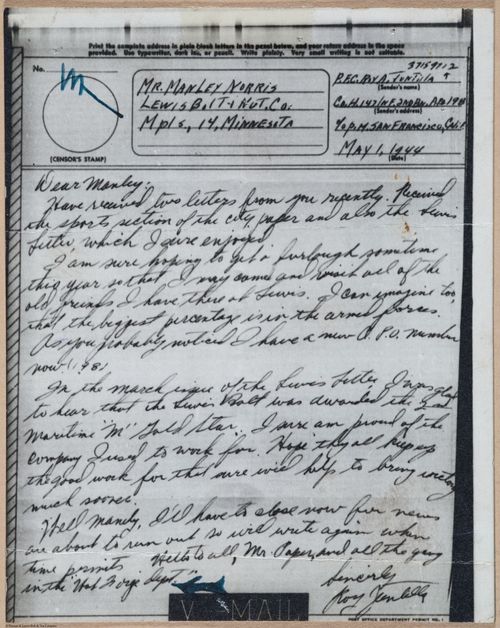 Print the complete address in plain block letters in the panel below, and your return address in the space
provided. Use typewriter, dark ink, or pencil. Write plainly. Very small writing is not suitable.
No.
(CENSOR'S STAMP)
MR. MANLEY NORRIS
LEWIS BOLT & NUT, CO.
Mpls, 14, MINNESOTA
37159712
P.F.C. Roy A. Juntilla
(Sender's name)
Co. H. 147 INF. 2ND Bn, APO 1981
(Sender's address)
% P.M. SAN FRANCISCO, Calif
MAY 1, 1944
(Date)
Dear Manley:
Have received two letters from you recently. Received
the sports section of the city paper and also the Lewis
Letter, which I sure enjoyed.
I am sure hoping to get a furlough sometime
this year so that I may come and visit all of the
old friends I have there at Lewis. I can imagine too
that the biggest percentage is in the armed forces.
As you probably noticed I have a new A.P.O. number
now (1981)
In the march issue of the Lewis Letter I was glad
to hear that the Lewis Bolt was awarded the 2nd
Maritime "M" Gold Star. I sure am proud of the
company I used to work for. Hope they all keep up
the good work for that sure will help to bring victory
much sooner.
Well Manly, I'll have to close now for news
are about to run out so will write again when
time permits. Hello to all, Mr. Paper, and all the gang
in the "Hot Forge Dept."
Sincerely
Roy Juntilla
V - MAIL
POST OFFICE DEPARTMENT PERMIT NO. 1